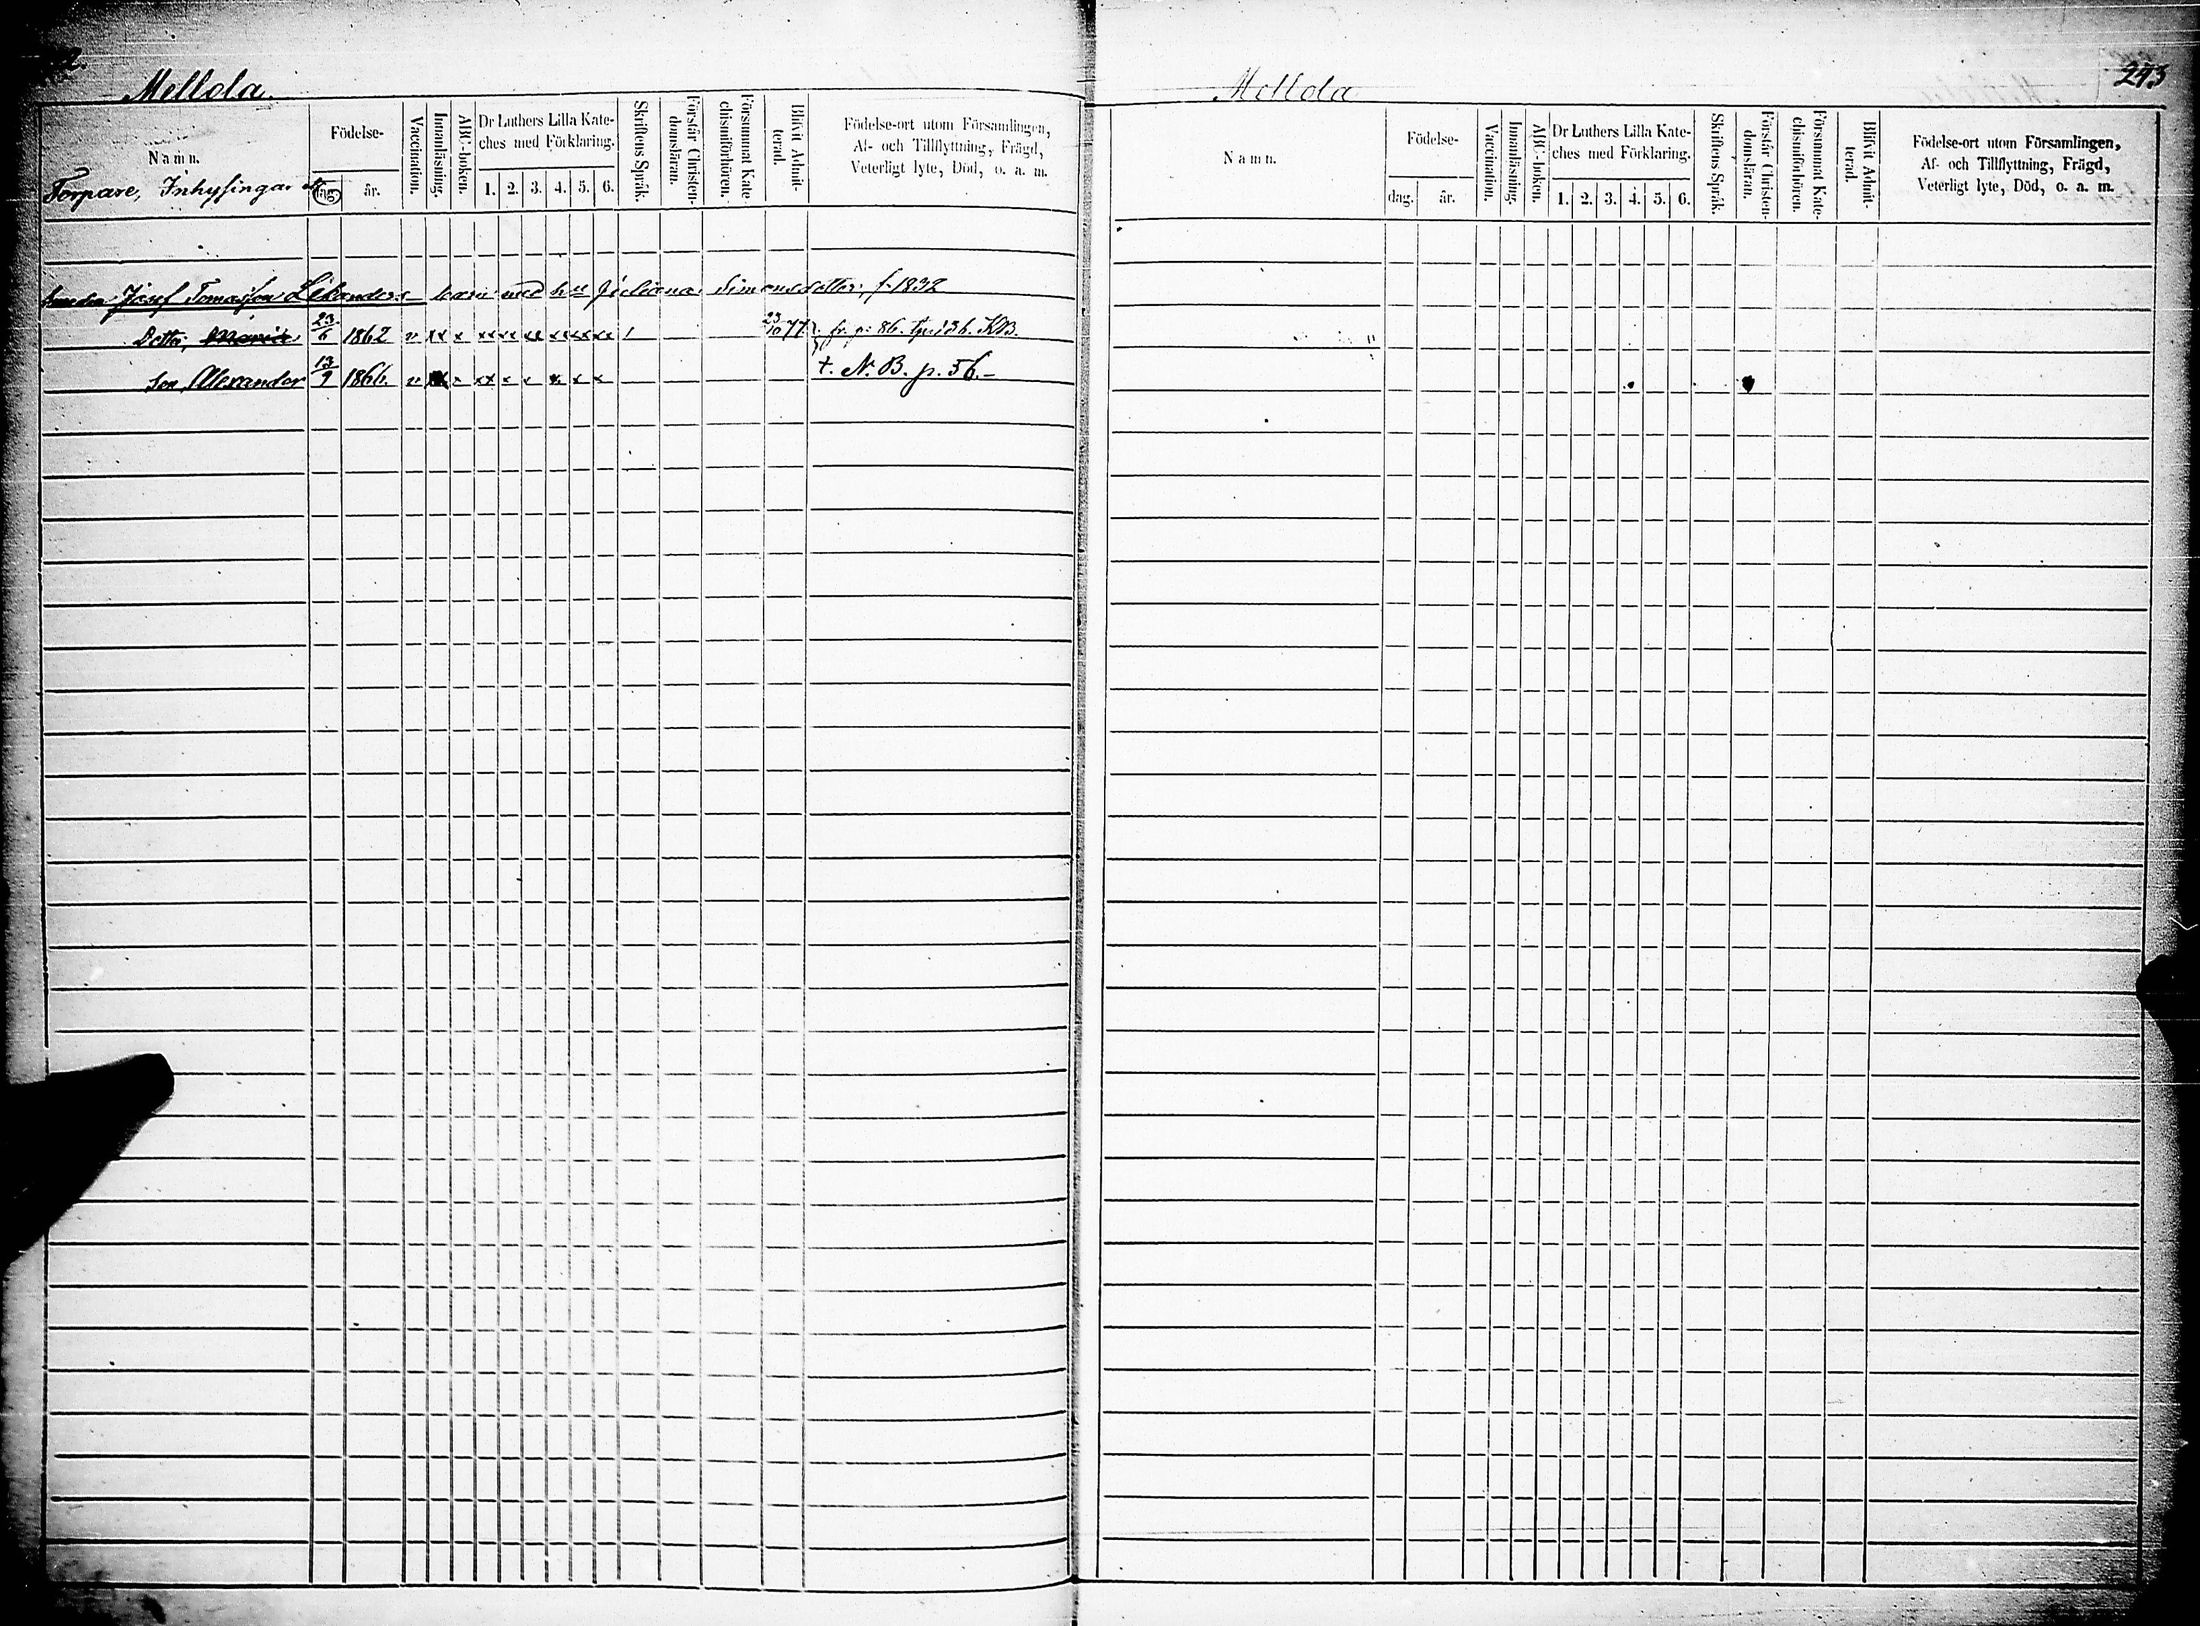 2.
Mellola
Namn.
Torpare, Inhysingar
Födelse-
dag. år.
Vaccination.
Innanläsning.
ABC-boken.
Dr Luthers Lilla Kate-
ches med Förklaring.
1. 2. 3. 4. 5. 6.
Skriftens Språk.
Förstår Christen-
domsläran.
Försummat Kate
chismiförhören.
Blifvit Admit-
terad.
Födelse-ort utom Församlingen,
Af- och Tillflyttning, Frägd,
Veterligt lyte, Död, o. a. m.
Josef Tomasson Likanders barn med hu Juliana Simonsdotter, f. 1832
Dotter, Maria 23/6 1862 v xx x xx x x x x x 1 23/10 77 fr. p: 86.
Son, Alexander 13/9 1866. v x xx x x x x x † N. B. p. 56.-
Mellola
243
Namn.
Födelse-
dag. år.
Vaccination.
Innanläsning.
ABC-boken.
Dr Luthers Lilla Kate-
ches med Förklaring.
1. 2. 3. 4. 5. 6.
Skriftens Språk.
Förstår Christen-
domsläran.
Försummat Kate-
chismiförhören.
Blifvit Admit-
terad.
Födelse-ort utom Församlingen,
Af- och Tillflyttning, Frägd,
Veterligt lyte, Död, o. a. m.